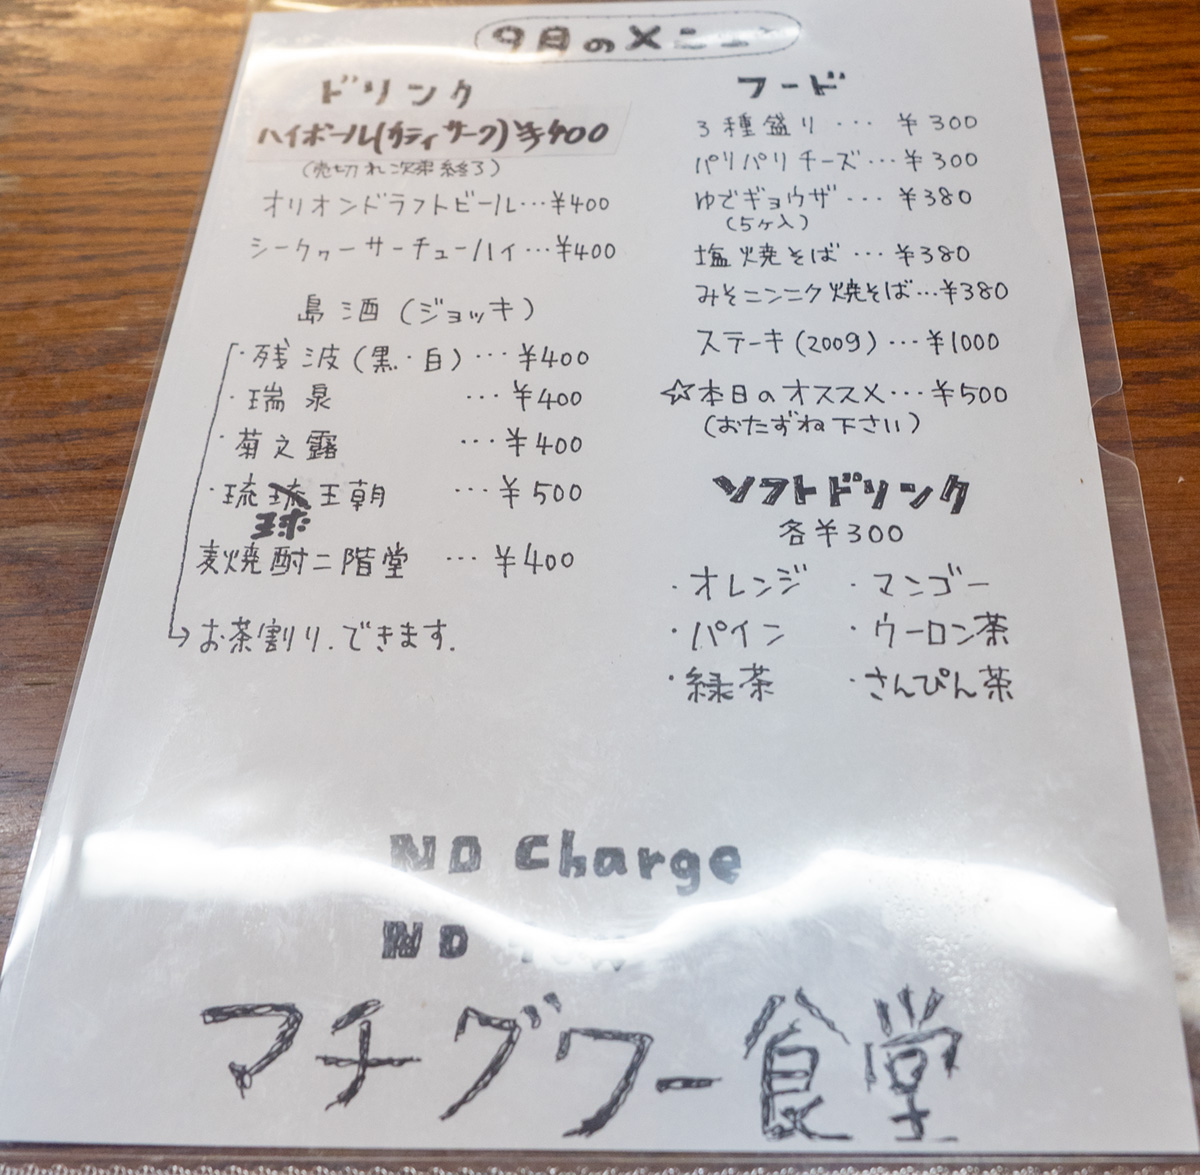 9月のメニュー
ドリンク
ハイボール(カティサーク)¥400
(売切れ次第終了)
オリオンドラフトビール…¥400
シークヮーサーチューハイ…¥400
島酒(ジョッキ)
・残波(黒・白)…¥400
・瑞泉 …¥400
・菊之露 …¥400
・琉球王朝 …¥500
麦焼酎二階堂 …¥400
お茶割り.できます.
フード
3種盛り…¥300
パリパリチーズ…¥300
ゆでギョウザ…¥380
(5ヶ入)
塩焼そば…¥380
みそニンニク焼そば…¥380
ステーキ(200g)…¥1000
☆本日のオススメ…¥500
(おたずね下さい)
ソフトドリンク
各¥300
・オレンジ ・マンゴー
・パイン ・ウーロン茶
・緑茶 ・さんぴん茶
NO Charge
NO
マチグワー食堂